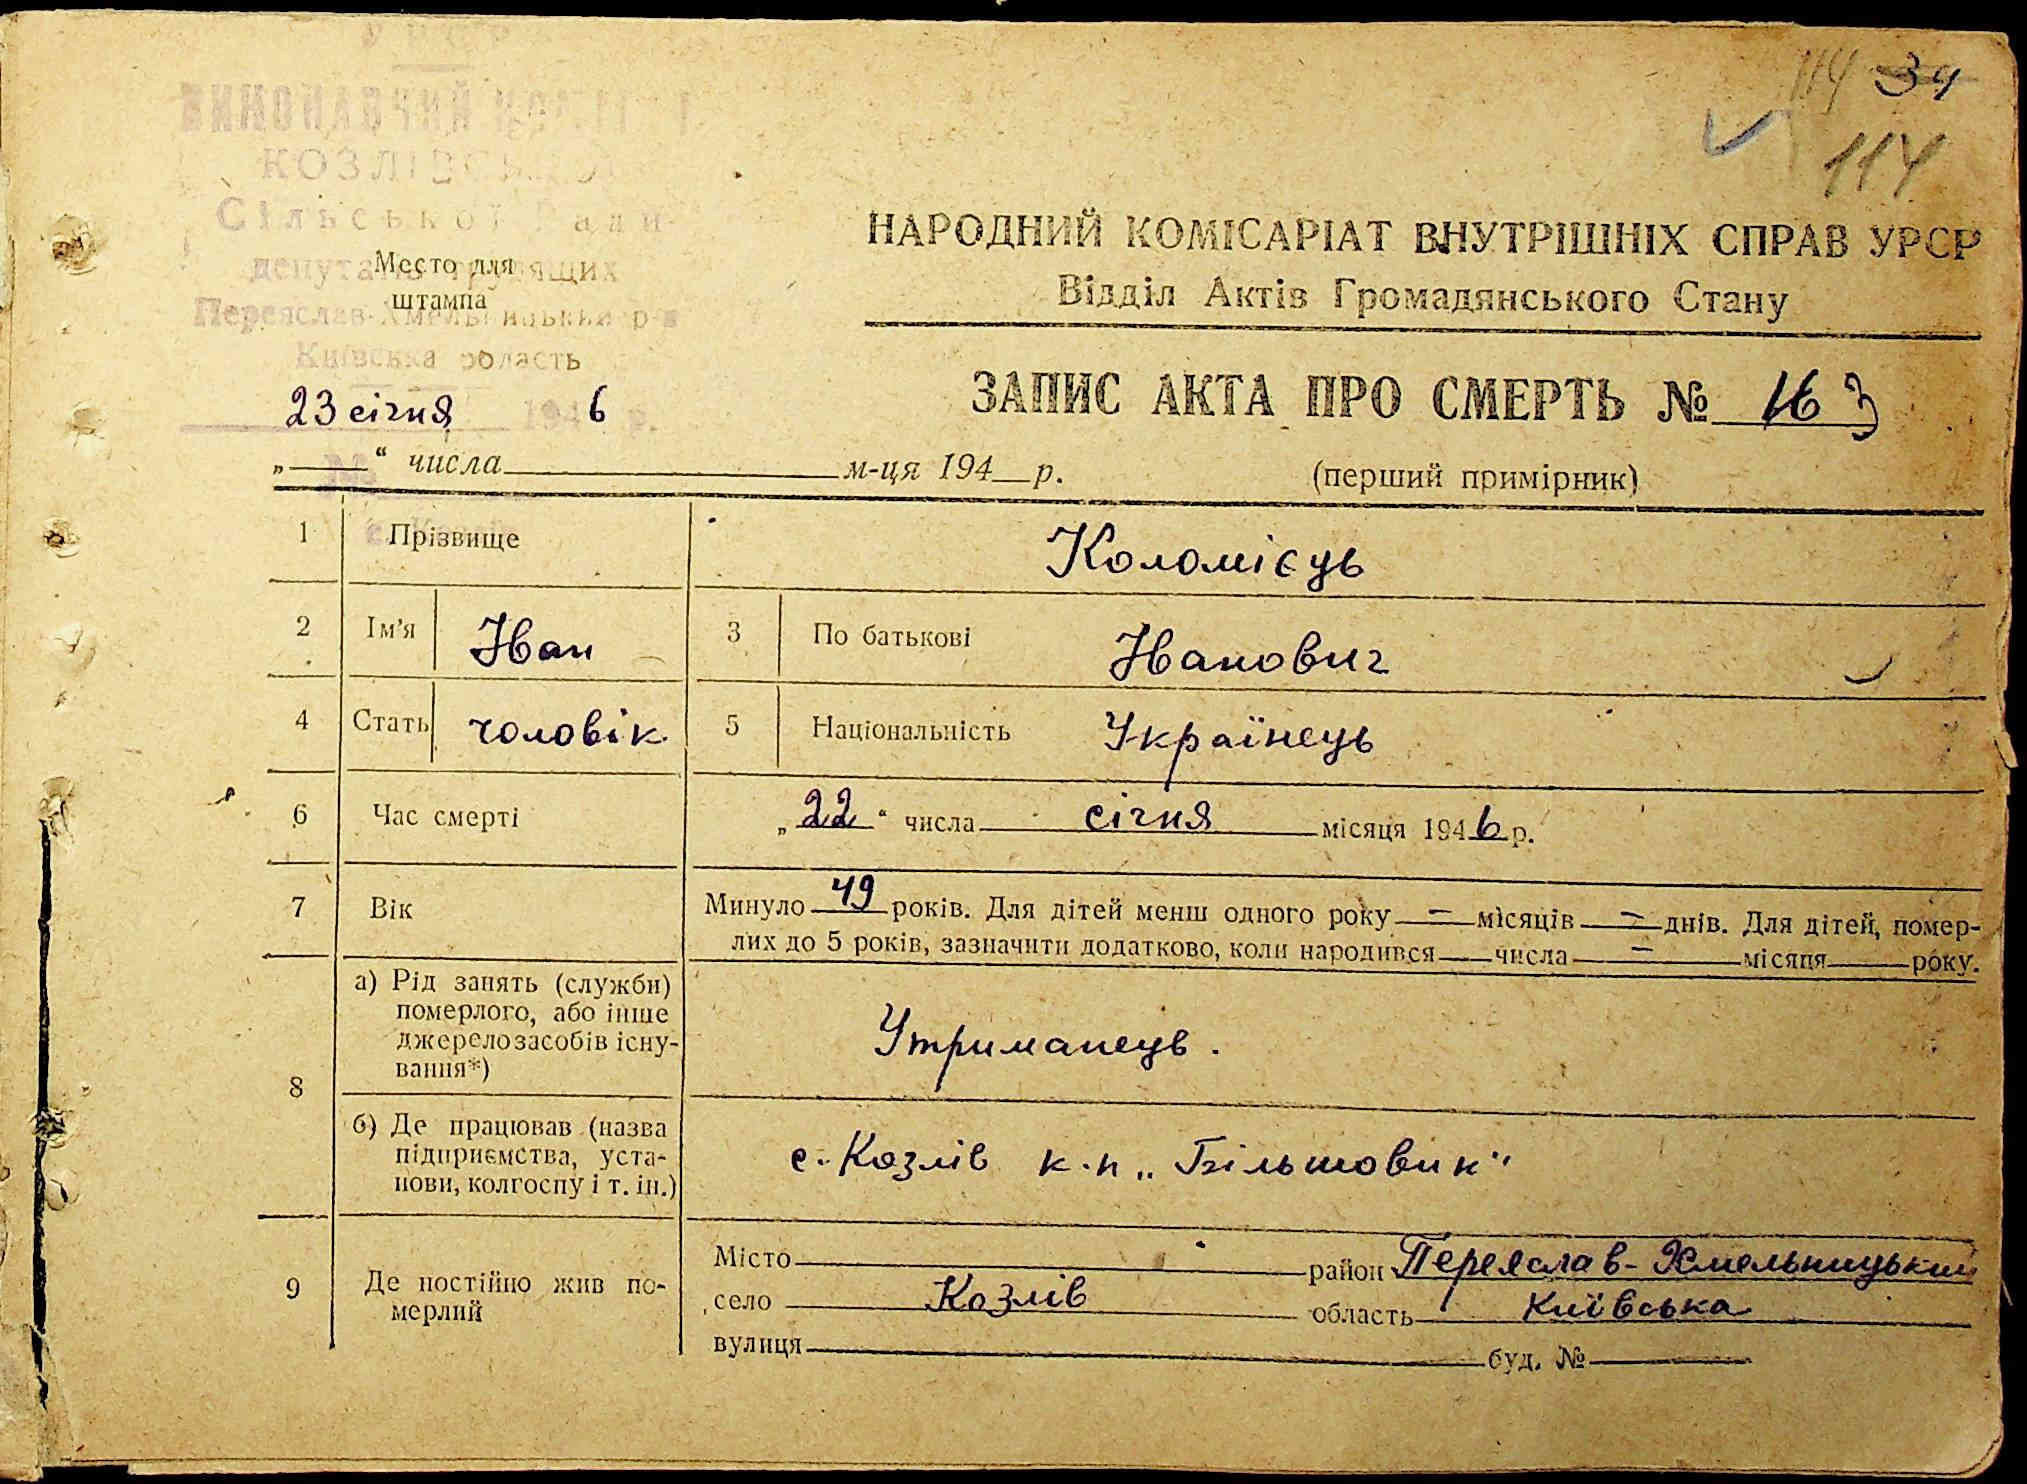 114 34
114
КОЗЛІВСЬКОЇ
Сільської Ради
депутатів трудящих
Место для
штампа
Переяслав-Хмельницький р-н
Київська область
23 січня 1946 р.
НАРОДНИЙ КОМІСАРІАТ ВНУТРІШНІХ СПРАВ УРСР
Відділ Актів Громадянського Стану
ЗАПИС АКТА ПРО СМЕРТЬ № 163
„ “ числа м-ця 194 р.
(перший примірник)
1 Прізвище Коломієць
2 Ім'я Іван 3 По батькові Іванович
4 Стать чоловік 5 Національність Українець
6 Час смерті „22“ числа січня місяця 1946 р.
7 Вік Минуло 49 років. Для дітей менш одного року — місяців — днів. Для дітей, помер-
лих до 5 років, зазначити додатково, коли народився числа — місяця року.
8 а) Рід занять (служби)
померлого, або інше
джерело засобів існу-
вання*)
Утриманець.
б) Де працював (назва
підприємства, уста-
нови, колгоспу і т. ін.)
с. Козлів к-п „Більшовик"
9 Де постійно жив по-
мерлий
Місто район Переяслав-Хмельницький
село Козлів область Київська
вулиця буд. №